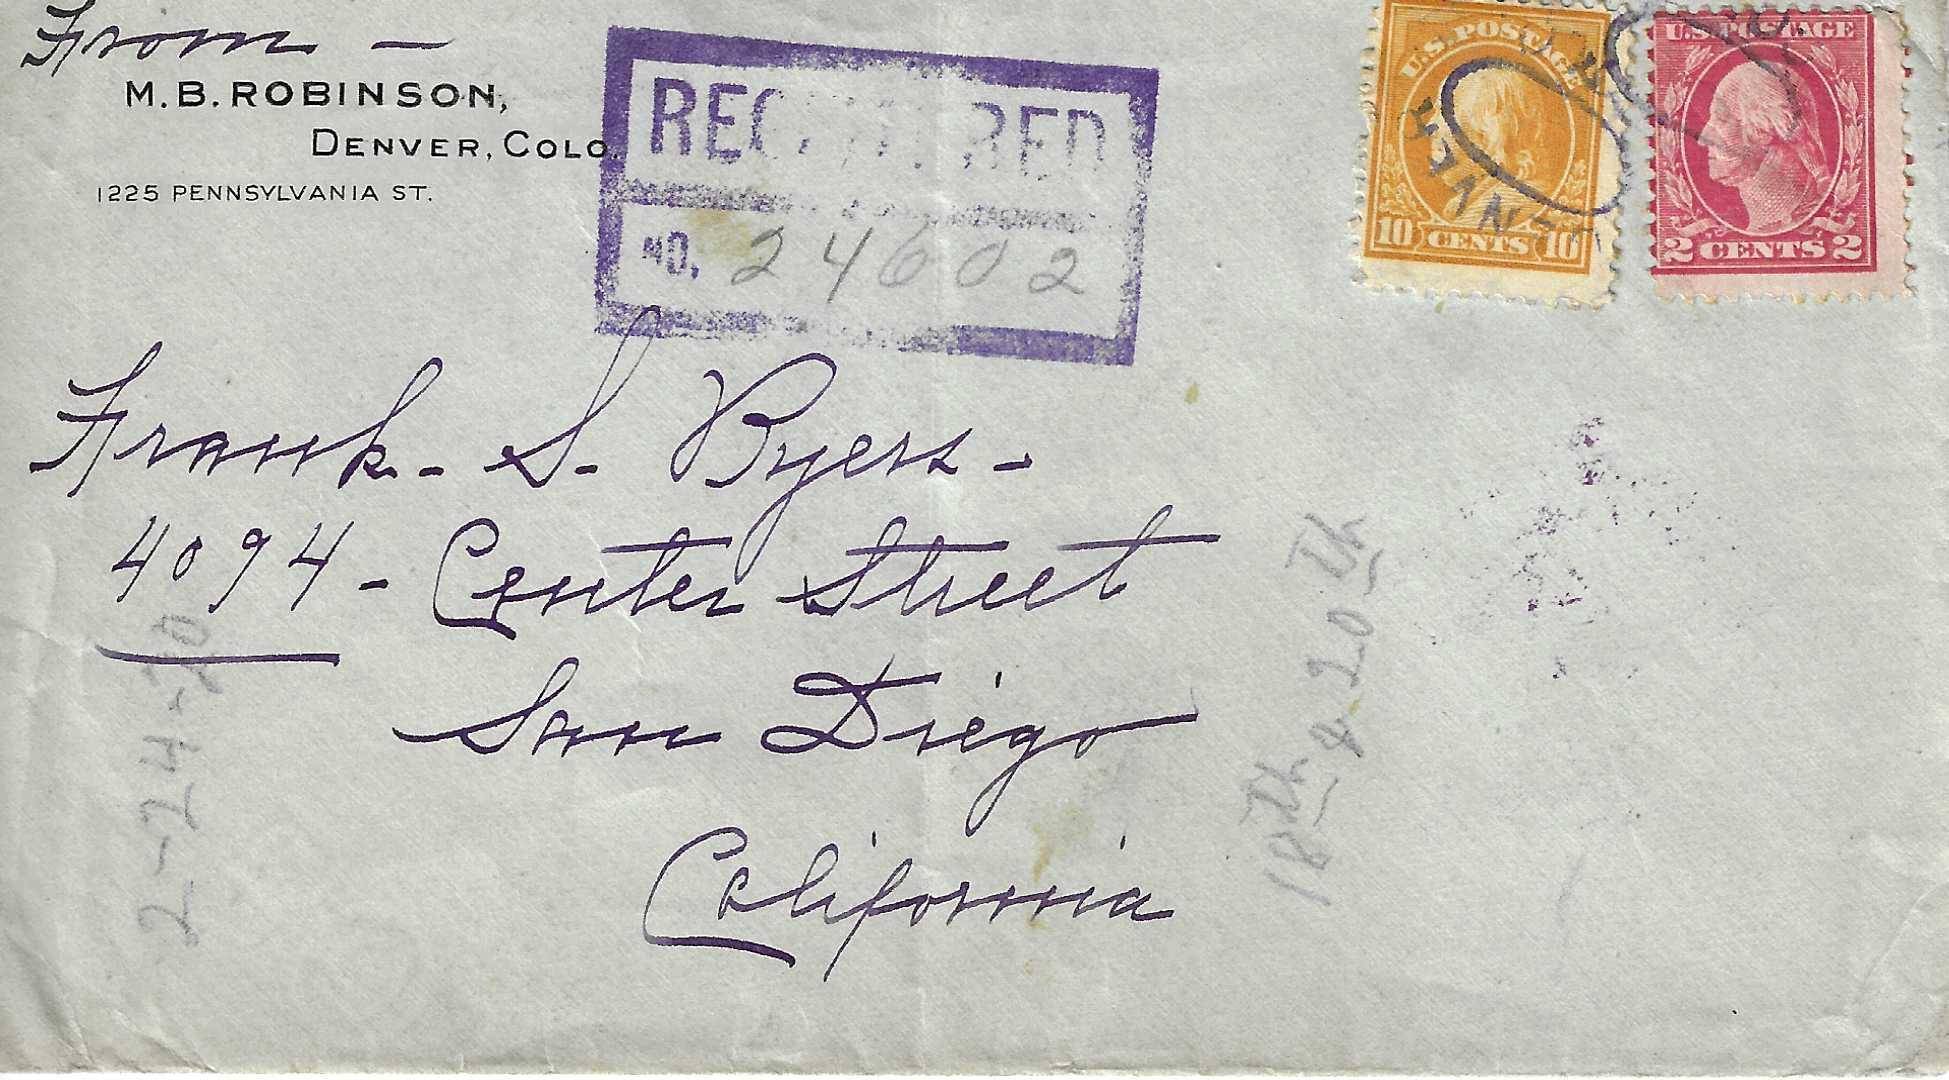 From —
M. B. ROBINSON,
DENVER, COLO.
1225 PENNSYLVANIA ST.
REGISTERED
NO. 24602
U.S. POSTAGE
10 CENTS 10
U.S. POSTAGE
2 CENTS 2
DENVER
Frank - S. Byers -
4094 - Center Street
San Diego
California
2-24-20
18th & 20th